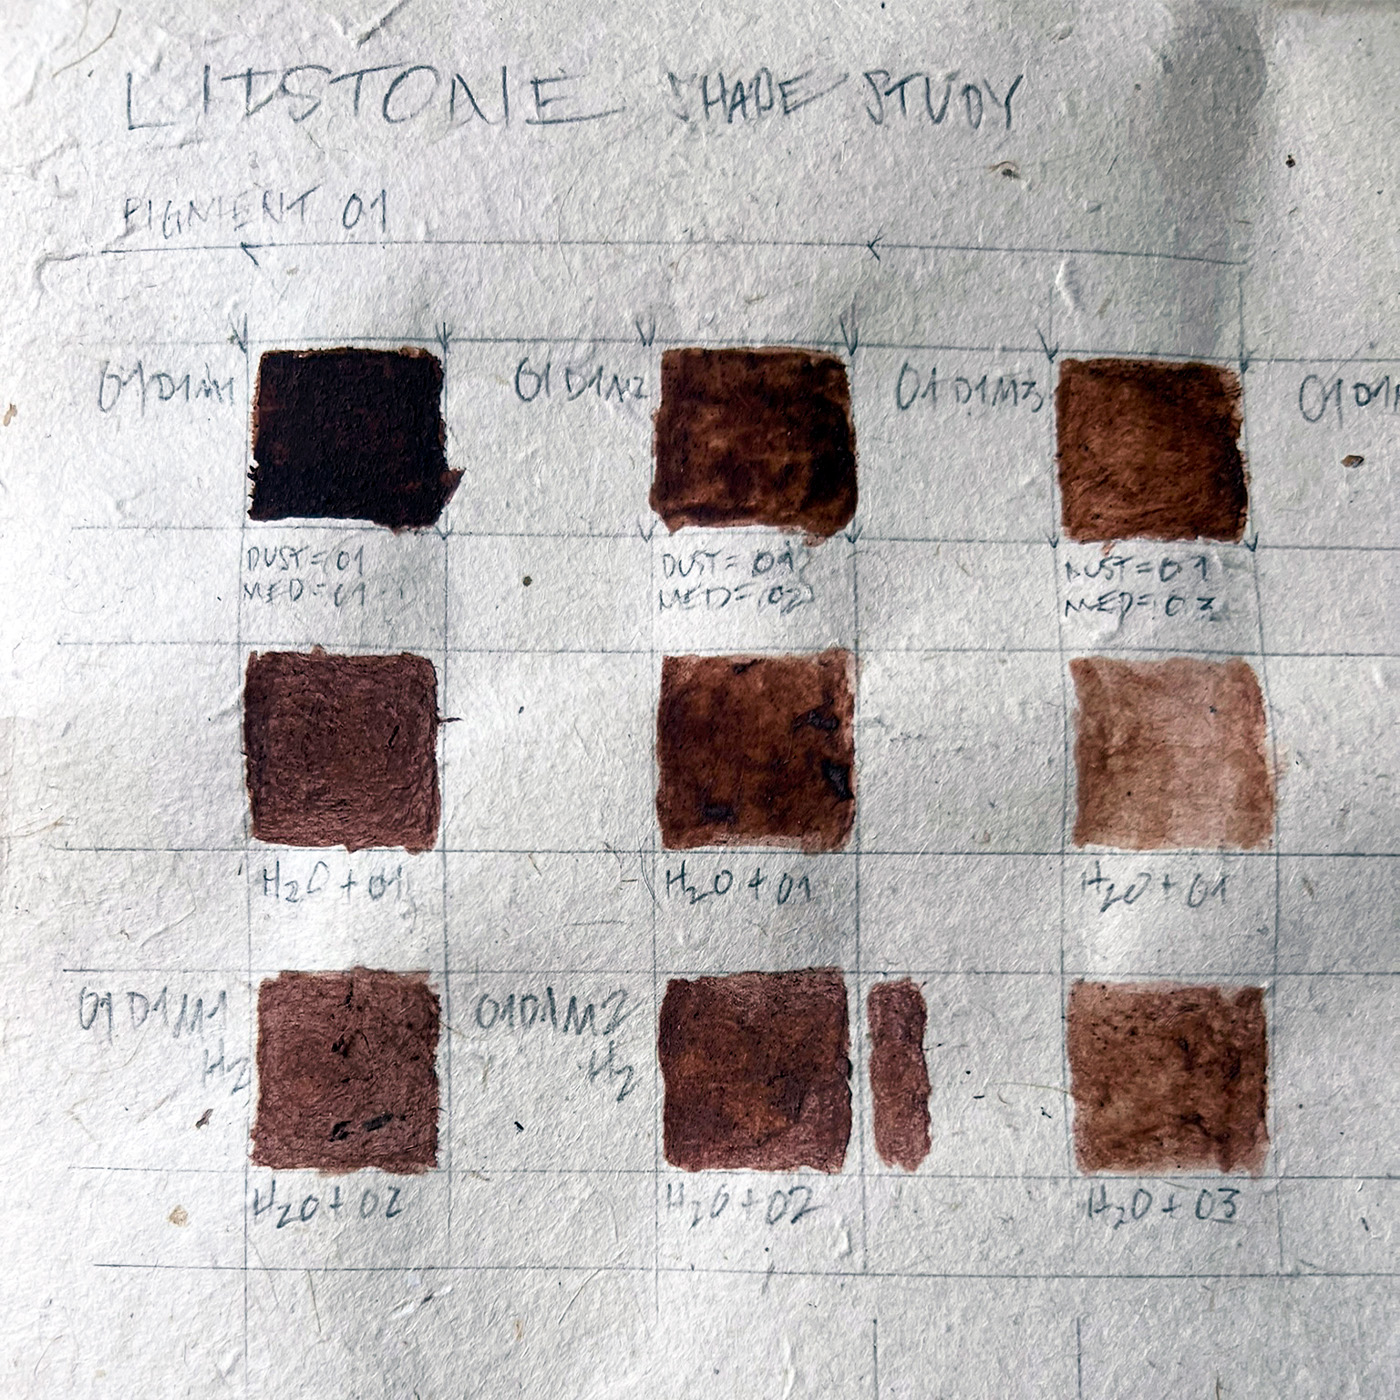 LITSTONE SHADE STUDY
PIGMENT 01
01D1M1 01D1M2 01D1M3 01D1
DUST=01 DUST=01 DUST=01
MED=01 MED=02 MED=03
H₂O+01 H₂O+01 H₂O+01
01D1M1 01D1M2
H₂ H₂
H₂O+02 H₂O+02 H₂O+03